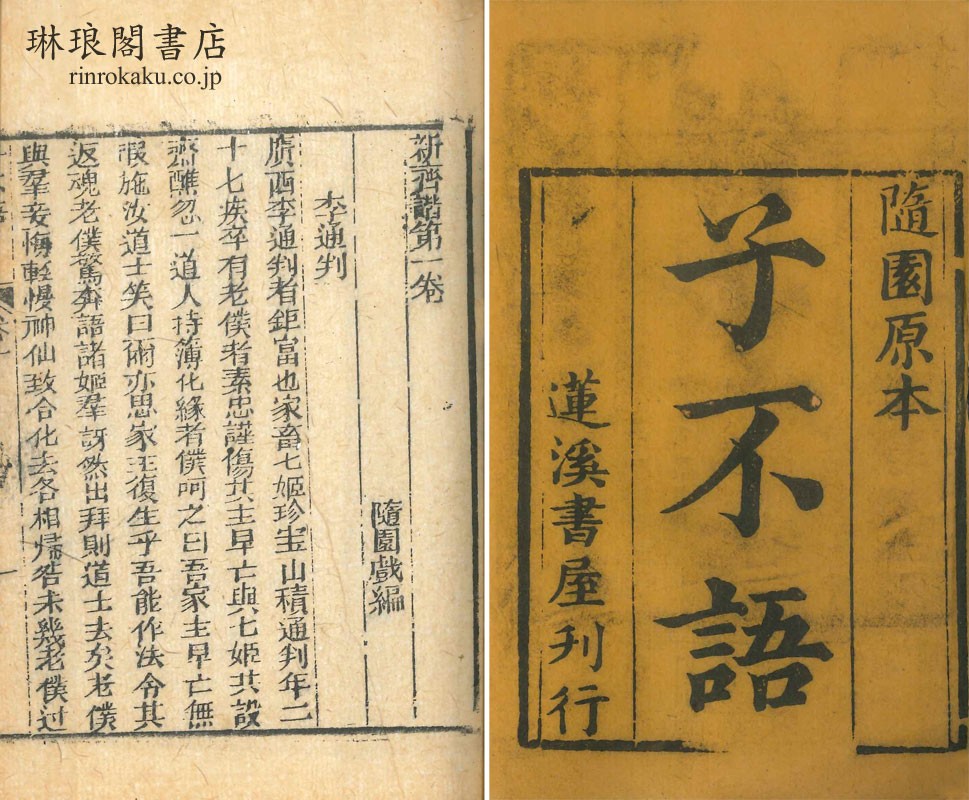 琳琅閣書店
rinrokaku.co.jp
隨園原本
子不語
蓮溪書屋刊行
新齊諧第一卷
隨園戲編
李通判
廣西李通判者鉅富也家畜七姬珍宝山積通判年二
十七疾卒有老僕者素忠謹傷其主早亡與七姬共設
齋醮忽一道人持簿化緣者僕呵之曰吾家主早亡無
暇施汝道士笑曰爾亦思家主復生乎吾能作法令其
返魂老僕驚奔語諸姬羣訝然出拜則道士去矣老僕
與羣妾悔輕慢神仙致合化去各相歸咎未幾老僕过